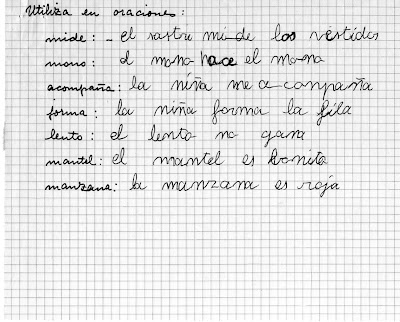 Utiliza en oraciones:
mide: - el sastre mi-de los vestidos
mono: el mono hace el mo-no
acompaña: la niña me a-conpaña
forma: la niña forma la fila
lento: el lento no gana
mantel: el mantel es bonito
manzana: la manzana es roja